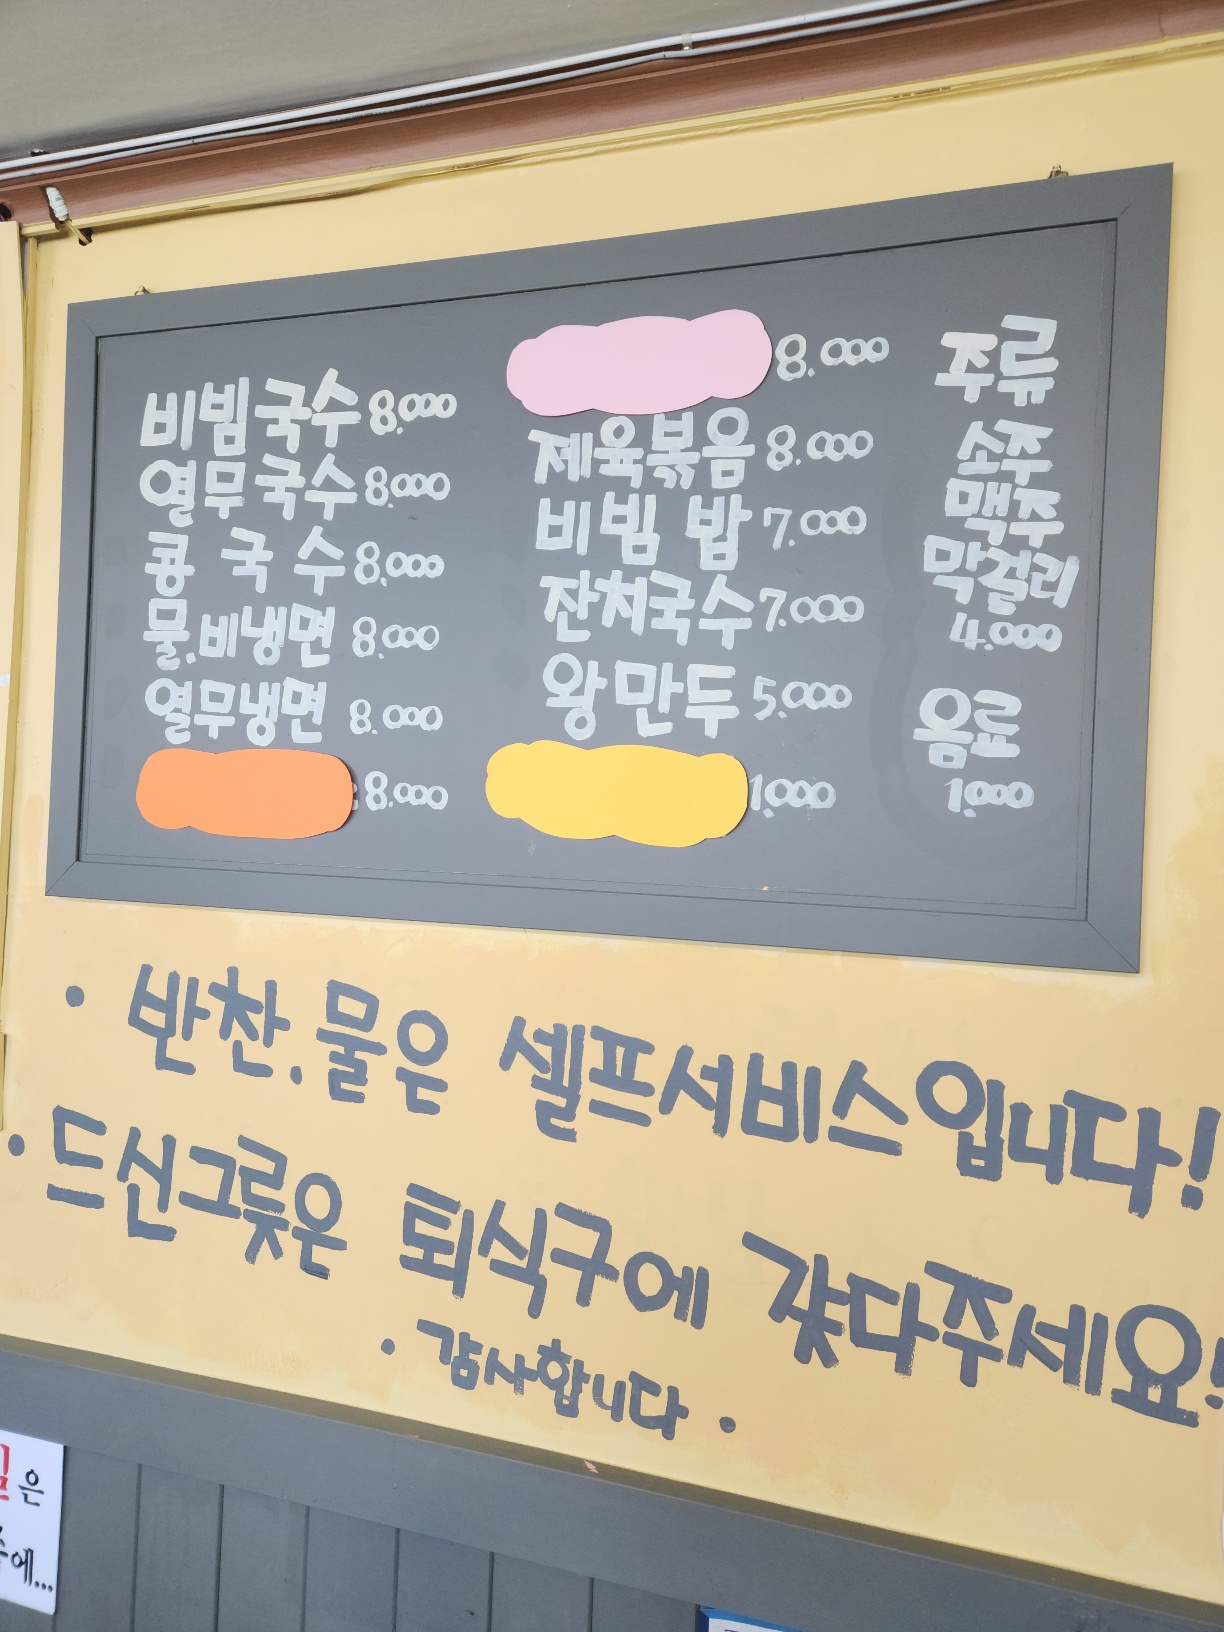 비빔국수 8.000
열무국수 8.000
콩 국 수 8.000
물.비냉면 8.000
열무냉면 8.000
8.000
8.000
제육볶음 8.000
비빔 밥 7.000
잔치국수 7.000
왕만두 5.000
1.000
주류
소주
맥주
막걸리
4.000
음료
1.000
• 반찬.물은 셀프서비스입니다!
• 드신그릇은 퇴식구에 갖다주세요!
• 감사합니다 •
은
에...